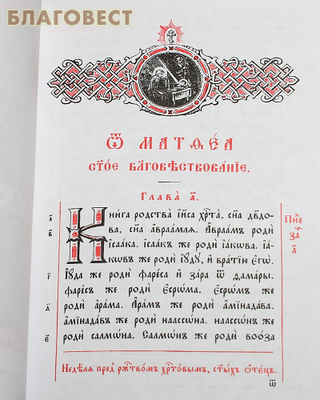 БЛАГОВЕСТ
Ѿ МАТѲЕ́А
СТ҃ОЕ БЛ҃ГОВѢСТВОВА́НІЕ.
ГЛАВА̀ А҃.
Кни́га родства̀ і҆и҃са хр҃та̀, сн҃а дв҃до-
ва, сн҃а а҆враа́мля. А҆враа́мъ же родѝ
і҆саа́ка. і҆саа́къ же родѝ і҆а́кѡва. і҆а́-
кѡвъ же родѝ і҆ꙋ́дꙋ, и҆ бра́тїю є҆гѡ̀.
І҆ꙋ́да же родѝ фаре́са и҆ за́ра ѿ ѳама́ры.
фаре́съ же родѝ є҆срѡ́ма. є҆срѡ́мъ же
родѝ а҆ра́ма. А҆ра́мъ же родѝ а҆мїнада́ва.
а҆мїнада́въ же родѝ наассѡ́на. наассѡ́нъ же
родѝ салмѡ́на. Салмѡ́нъ же родѝ воо́за
Недѣ́лѧ пред̾ рж҃тво́мъ хр҃то́вымъ, ст҃ы́хъ ѻ҆те́цъ.
ѿ